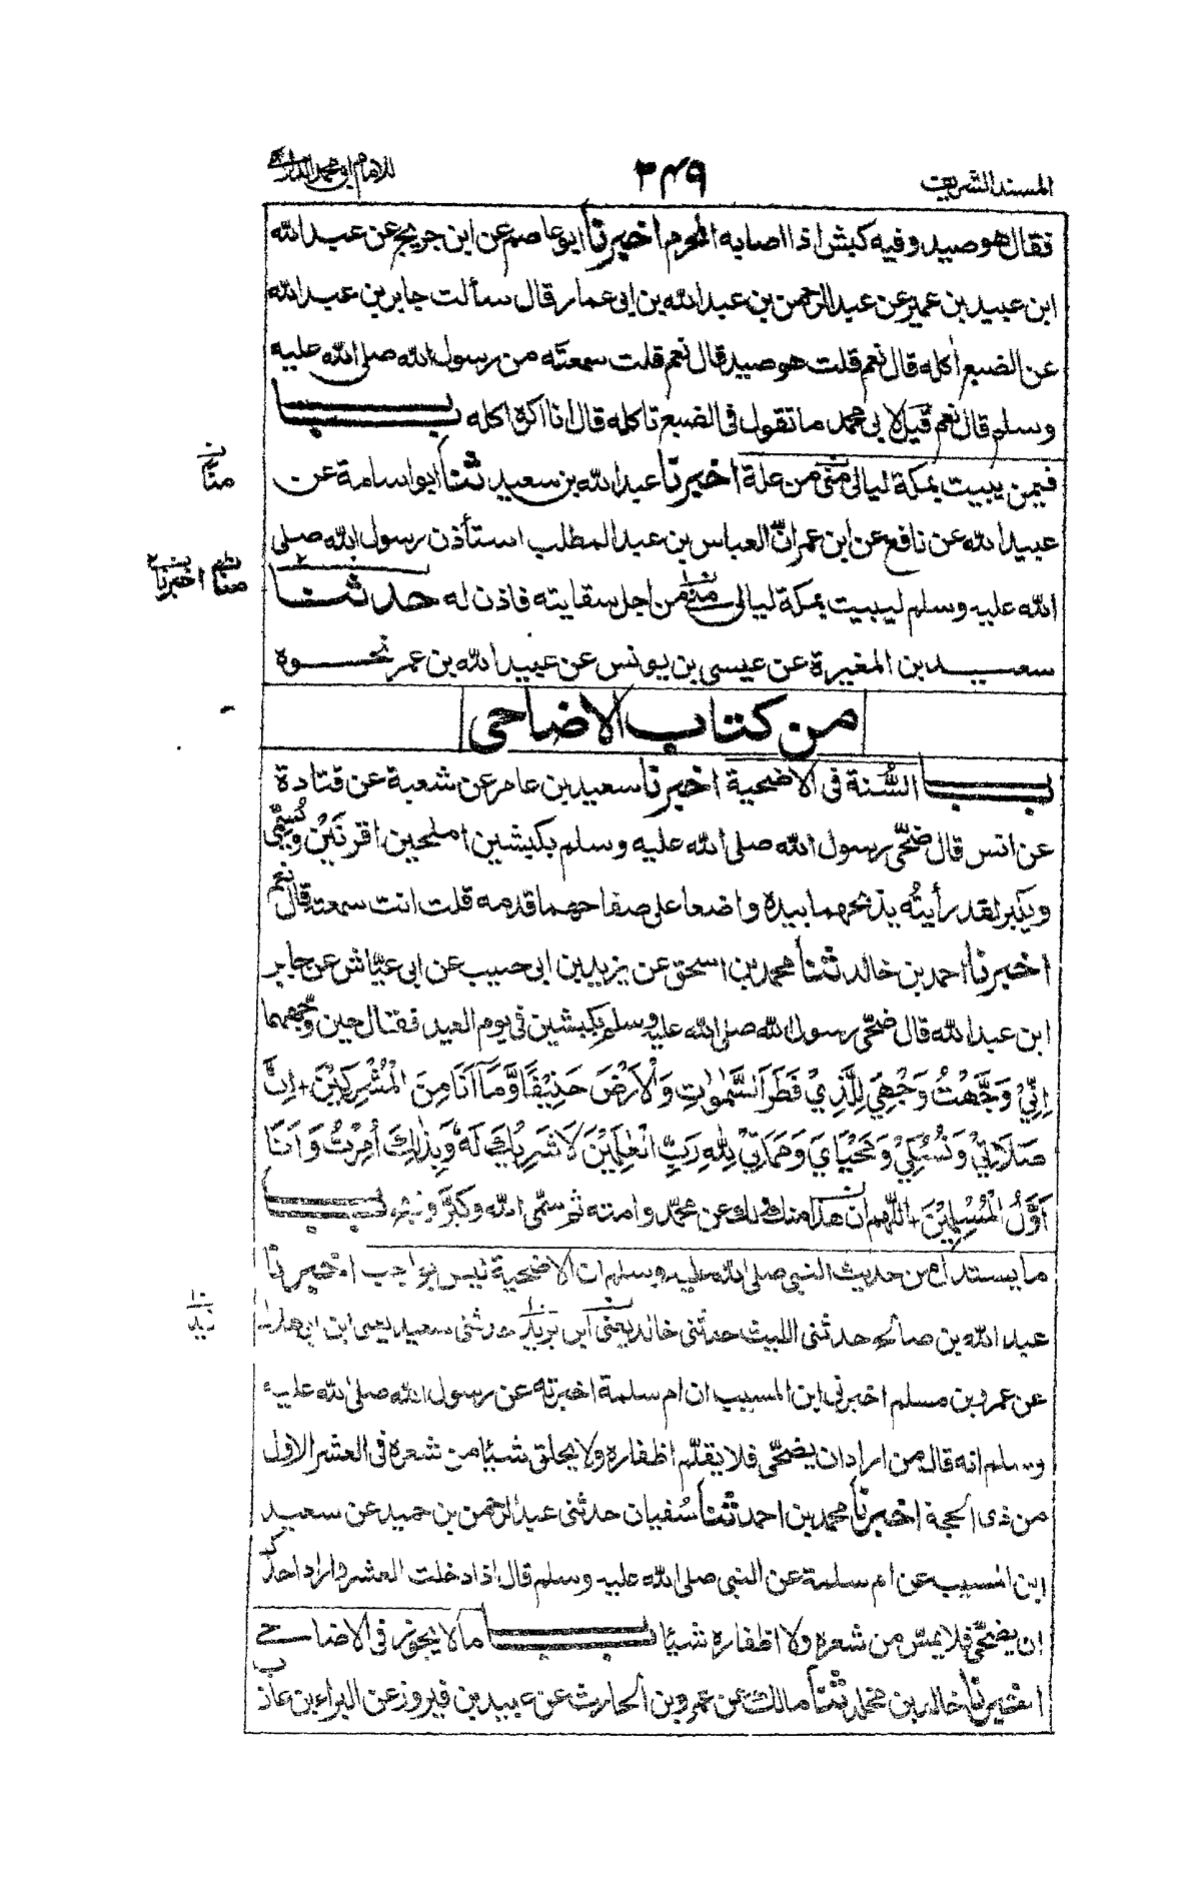 المسند الشريف
٢٤٩
للامام ابى محمد الدارمى
فقال هو صيد وفيه كبش اذا اصابه المحرم اخبرنا ابو عاصم عن ابن جريج عن عبد الله
ابن عبيد بن عمير عن عبد الرحمن بن عبد الله بن ابى عمار قال سألت جابر بن عبد الله
عن الضبع اكله قال نعم قلت هو صيد قال نعم قلت سمعته من رسول الله صلى الله عليه
وسلم قال نعم قيل لابى محمد ما تقول فى الضبع تاكله قال انا اكره اكله باب
فيمن يبيت بمكة ليالى منى من علة اخبرنا عبد الله بن سعيد ثنا ابو اسامة عن
عبيد الله عن نافع عن ابن عمر انّ العباس بن عبد المطلب استأذن رسول الله صلى
الله عليه وسلم ليبيت بمكة ليالى منى من اجل سقايته فاذن له حدثنا
سعيد بن المغيرة عن عيسى بن يونس عن عبيد الله بن عمر نحوه
من كتاب الاضاحى
باب السُّنة فى الاضحية اخبرنا سعيد بن عامر عن شعبة عن قتادة
عن انس قال ضحّى رسول الله صلى الله عليه وسلم بكبشين املحين اقرنَيْن ويُسمّى
ويكبر لقد رأيتُه يذبحهما بيده واضعا على صفاحهما قدمه قلت انت سمعته قال نعم
اخبرنا احمد بن خالد ثنا محمد بن اسحق عن يزيد بن ابى حبيب عن ابى عيّاش عن جابر
ابن عبد الله قال ضحّى رسول الله صلى الله عليه وسلم بكبشين فى يوم العيد فقال حين وجّههما
اِنِّيْ وَجَّهْتُ وَجْهِيَ لِلَّذِيْ فَطَرَ السَّمٰوٰتِ وَالْاَرْضَ حَنِيْفًا وَّمَآ اَنَا مِنَ الْمُشْرِكِيْنَ اِنَّ
صَلَاتِيْ وَنُسُكِيْ وَمَحْيَايَ وَمَمَاتِيْ لِلّٰهِ رَبِّ الْعٰلَمِيْنَ لَا شَرِيْكَ لَهٗ وَبِذٰلِكَ اُمِرْتُ وَاَنَا
اَوَّلُ الْمُسْلِمِيْنَ اللّهم ان هذا منك ولك عن محمّد وامته ثم سمّى الله وكبّر وذبحه باب
ما يستدل من حديث النبى صلى الله عليه وسلم ان الاضحية ليس بواجب اخبرنا
عبد الله بن صالح حدثنى الليث حدثنى خالد يعنى ابن يزيد حدثنى سعيد يعنى ابن ابى هلال
عن عمرو بن مسلم اخبرنى ابن المسيب ان ام سلمة اخبرته عن رسول الله صلى الله عليه
وسلم انه قال من اراد ان يضحّى فلا يقلّم اظفاره ولا يحلق شيئا من شعره فى العشر الاول
من ذى الحجة اخبرنا محمد بن احمد ثنا سُفيان حدثنى عبد الرحمن بن حميد عن سعيد
ابن المسيب عن ام سلمة عن النبى صلى الله عليه وسلم قال اذا دخلت العشر واراد احدكم
ان يضحّى فلا يمسّ من شعره ولا اظفاره شيئا باب ما لا يجوز فى الاضاحى
اخبرنا خالد بن مخلد ثنا مالك عن عمرو بن الحارث عن عبيد بن فيروز عن البراء بن عازب